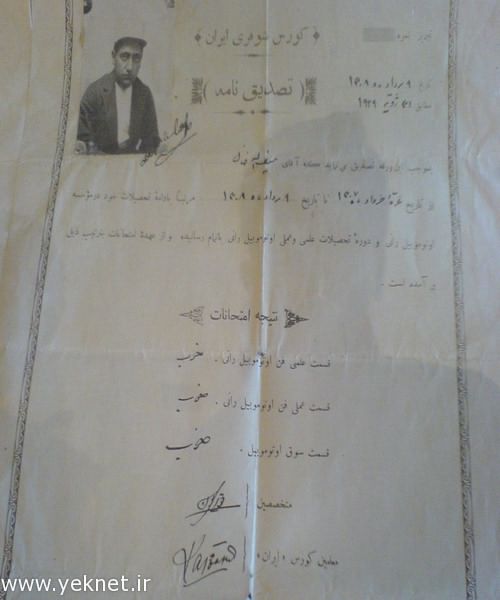 ﴿ کورس شوفری ایران ﴾
نمره
﴿ تصدیق نامه ﴾
تاریخ ۹ مرداد ماه ۱۳۰۸
مطابق ۳۱ ژوئیه ۱۹۲۹
بموجب این ورقه تصدیق می نماید که آقای
از تاریخ خرداد ۱۳۰۷ تا تاریخ ۹ مرداد ماه ۱۳۰۸ مرتباً بادامهٔ تحصیلات خود در مؤسسه
اوتوموبیل رانی و دورهٔ تحصیلات علمی و عملی اوتوموبیل رانی باتمام رسانیده و از عهدهٔ امتحانات بترتیب ذیل
بر آمده است .
نتیجه امتحانات
قسمت علمی فن اوتوموبیل رانی . خوب
قسمت عملی فن اوتوموبیل رانی . خوب
قسمت سوق اوتوموبیل . خوب
متخصصین
معلمین کورس «ایران»
www.yeknet.ir